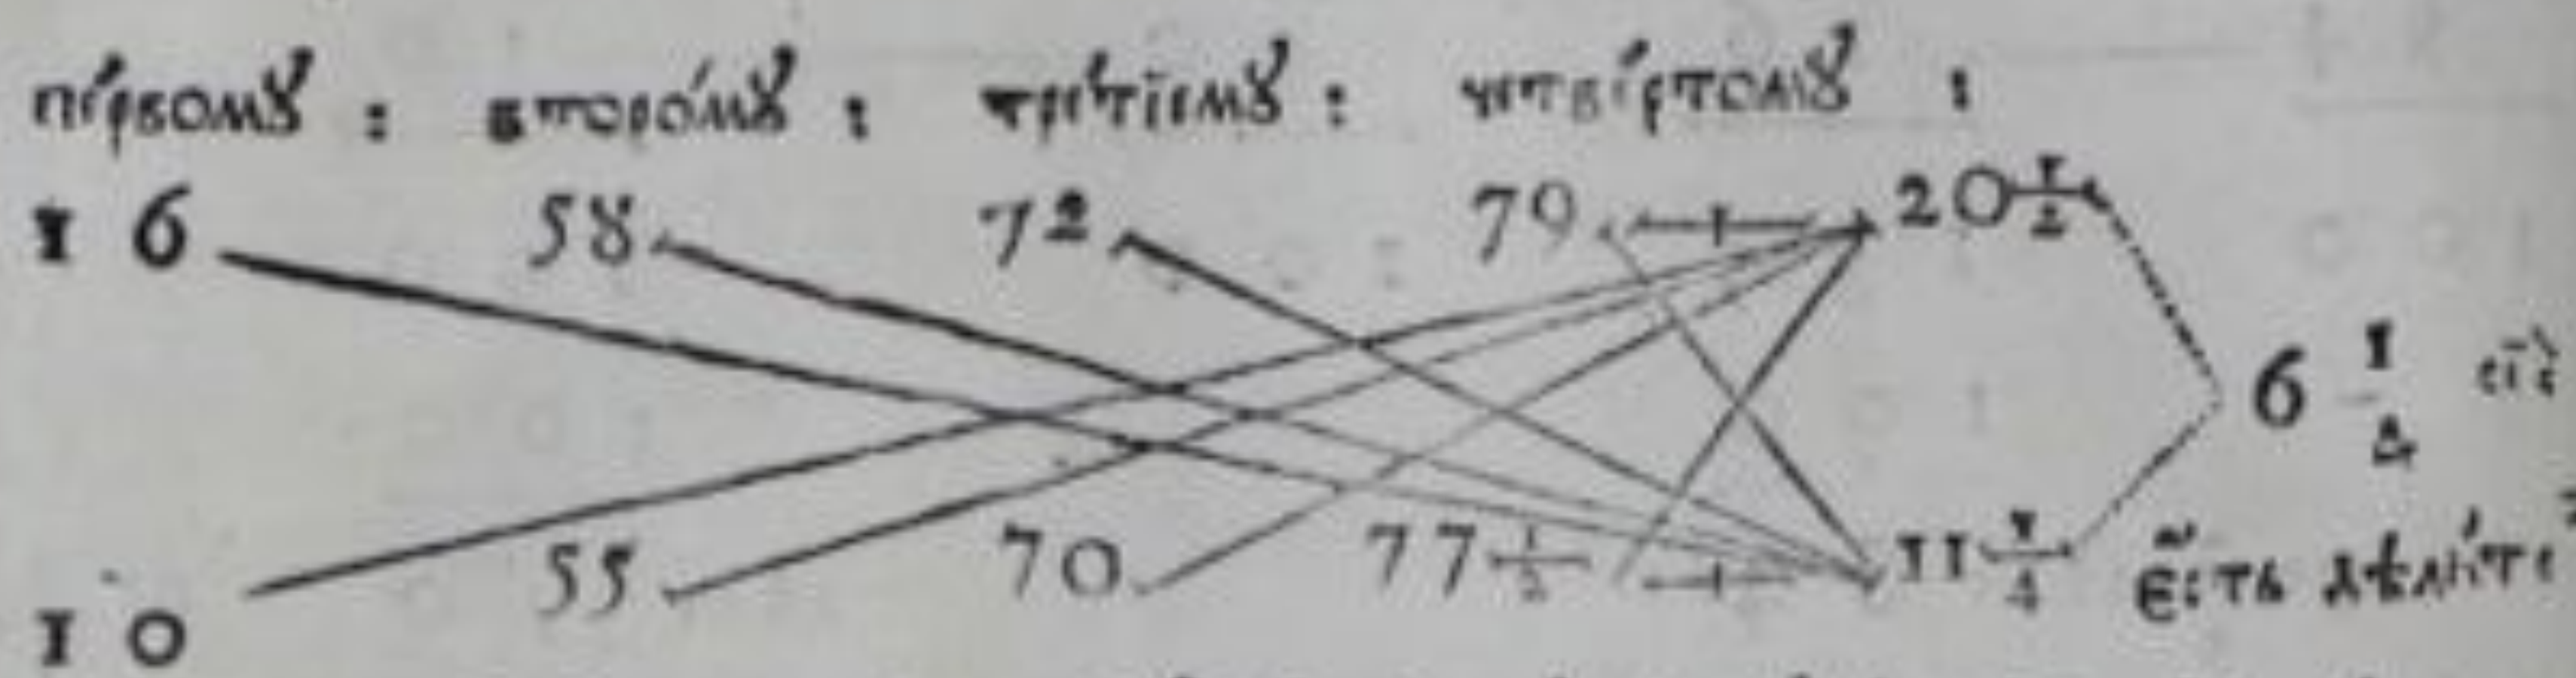 пе́рвомꙋ : второ́мꙋ : тре́тїемꙋ : четве́ртомꙋ :
16 58 72 79 20 1/2
6 1/4
10 55 70 77 1/2 11 1/4 є҆́сть дѣли́те